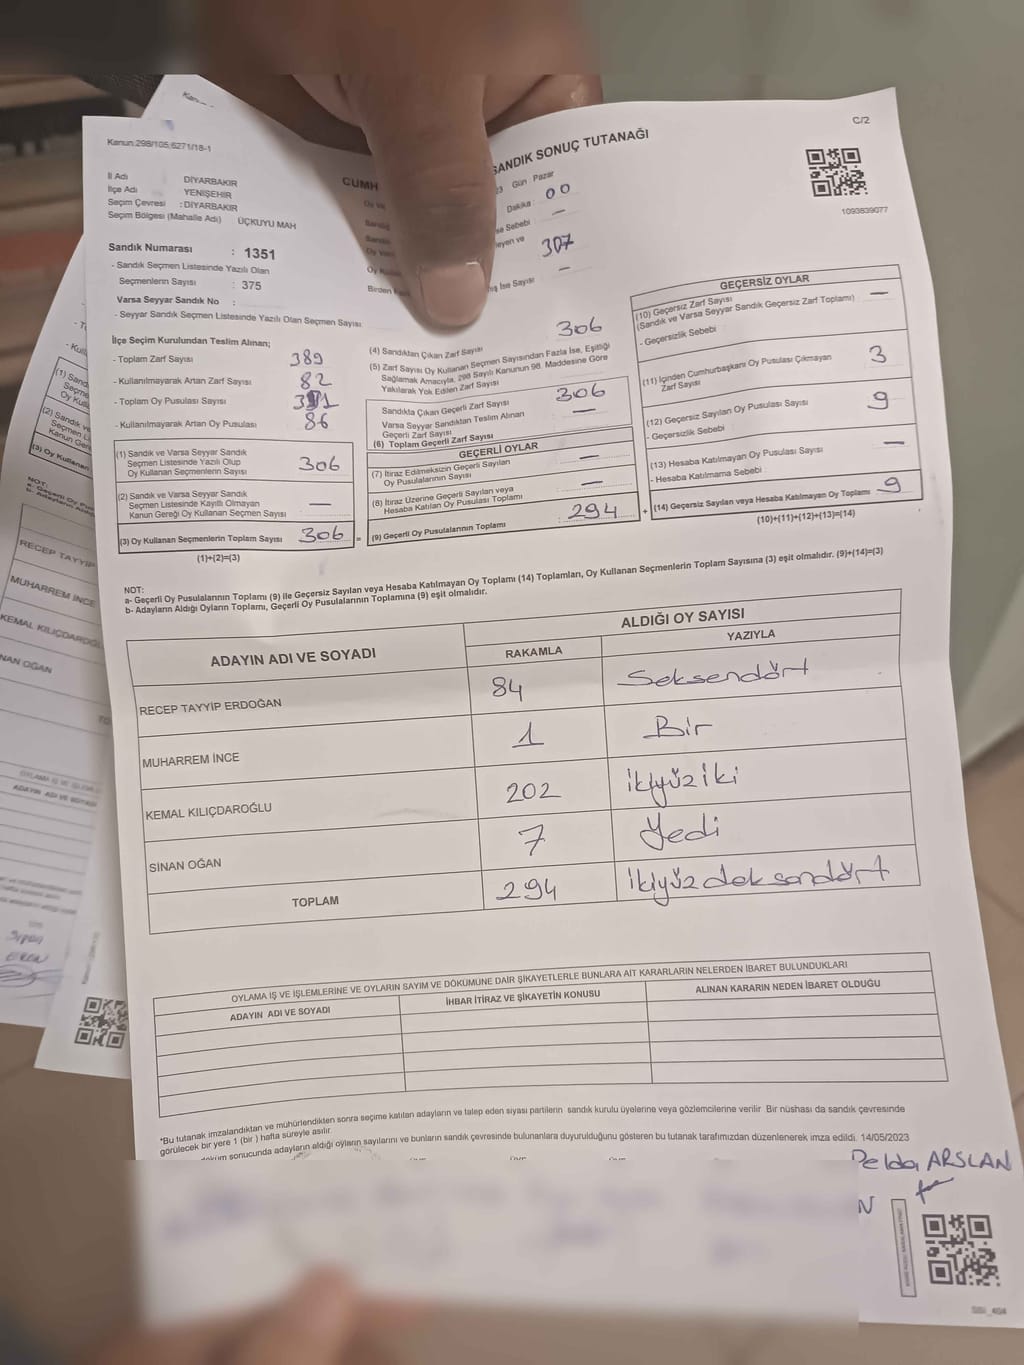 C/2
Kanun:298/105;6271/18-1
SANDIK SONUÇ TUTANAĞI
CUMH
1093839077
İl Adı DİYARBAKIR
İlçe Adı YENİŞEHİR
Seçim Çevresi : DİYARBAKIR
Seçim Bölgesi (Mahalle Adı) ÜÇKUYU MAH
Gün Pazar
Dakika : 00
se Sebebi : —
307
ış İse Sayısı —
Sandık Numarası : 1351
- Sandık Seçmen Listesinde Yazılı Olan
Seçmenlerin Sayısı : 375
Varsa Seyyar Sandık No :
- Seyyar Sandık Seçmen Listesinde Yazılı Olan Seçmen Sayısı
İlçe Seçim Kurulundan Teslim Alınan;
- Toplam Zarf Sayısı 389
- Kullanılmayarak Artan Zarf Sayısı 82
- Toplam Oy Pusulası Sayısı
- Kullanılmayarak Artan Oy Pusulası 86
(1) Sandık ve Varsa Seyyar Sandık
Seçmen Listesinde Yazılı Olup
Oy Kullanan Seçmenlerin Sayısı 306
(2) Sandık ve Varsa Seyyar Sandık
Seçmen Listesinde Kayıtlı Olmayan
Kanun Gereği Oy Kullanan Seçmen Sayısı —
(3) Oy Kullanan Seçmenlerin Toplam Sayısı 306 =
(1)+(2)=(3)
(4) Sandıktan Çıkan Zarf Sayısı 306
(5) Zarf Sayısı Oy Kullanan Seçmen Sayısından Fazla İse, Eşitliği
Sağlamak Amacıyla, 298 Sayılı Kanunun 98. Maddesine Göre
Yakılarak Yok Edilen Zarf Sayısı
Sandıkta Çıkan Geçerli Zarf Sayısı 306
Varsa Seyyar Sandıktan Teslim Alınan
Geçerli Zarf Sayısı —
(6) Toplam Geçerli Zarf Sayısı
GEÇERLİ OYLAR
(7) İtiraz Edilmeksizin Geçerli Sayılan
Oy Pusulalarının Sayısı —
(8) İtiraz Üzerine Geçerli Sayılan veya
Hesaba Katılan Oy Pusulası Toplamı —
(9) Geçerli Oy Pusulalarının Toplamı 294 +
GEÇERSİZ OYLAR
(10) Geçersiz Zarf Sayısı —
(Sandık ve Varsa Seyyar Sandık Geçersiz Zarf Toplamı)
- Geçersizlik Sebebi :
(11) İçinden Cumhurbaşkanı Oy Pusulası Çıkmayan
Zarf Sayısı 3
(12) Geçersiz Sayılan Oy Pusulası Sayısı 9
- Geçersizlik Sebebi :
(13) Hesaba Katılmayan Oy Pusulası Sayısı —
- Hesaba Katılmama Sebebi :
(14) Geçersiz Sayılan veya Hesaba Katılmayan Oy Toplamı 9
(10)+(11)+(12)+(13)=(14)
NOT:
a- Geçerli Oy Pusulalarının Toplamı (9) ile Geçersiz Sayılan veya Hesaba Katılmayan Oy Toplamı (14) Toplamları, Oy Kullanan Seçmenlerin Toplam Sayısına (3) eşit olmalıdır. (9)+(14)=(3)
b- Adayların Aldığı Oyların Toplamı, Geçerli Oy Pusulalarının Toplamına (9) eşit olmalıdır.
ADAYIN ADI VE SOYADI ALDIĞI OY SAYISI
RAKAMLA YAZIYLA
RECEP TAYYİP ERDOĞAN 84 Seksendört
MUHARREM İNCE 1 Bir
KEMAL KILIÇDAROĞLU 202 ikiyüziki
SİNAN OĞAN 7 Yedi
TOPLAM 294 ikiyüzdoksandört
OYLAMA İŞ VE İŞLEMLERİNE VE OYLARIN SAYIM VE DÖKÜMÜNE DAİR ŞİKAYETLERLE BUNLARA AİT KARARLARIN NELERDEN İBARET BULUNDUKLARI
ADAYIN ADI VE SOYADI İHBAR İTİRAZ VE ŞİKAYETİN KONUSU ALINAN KARARIN NEDEN İBARET OLDUĞU
*Bu tutanak imzalandıktan ve mühürlendikten sonra seçime katılan adayların ve talep eden siyasi partilerin sandık kurulu üyelerine veya gözlemcilerine verilir. Bir nüshası da sandık çevresinde
görülecek bir yere 1 (bir) hafta süreyle asılır.
döküm sonucunda adayların aldığı oyların sayılarını ve bunların sandık çevresinde bulunanlara duyurulduğunu gösteren bu tutanak tarafımızdan düzenlenerek imza edildi. 14/05/2023
Pelda ARSLAN
N
RECEP TAYYİP
MUHARREM İNCE
KEMAL KILIÇDAROĞL
NAN OĞAN